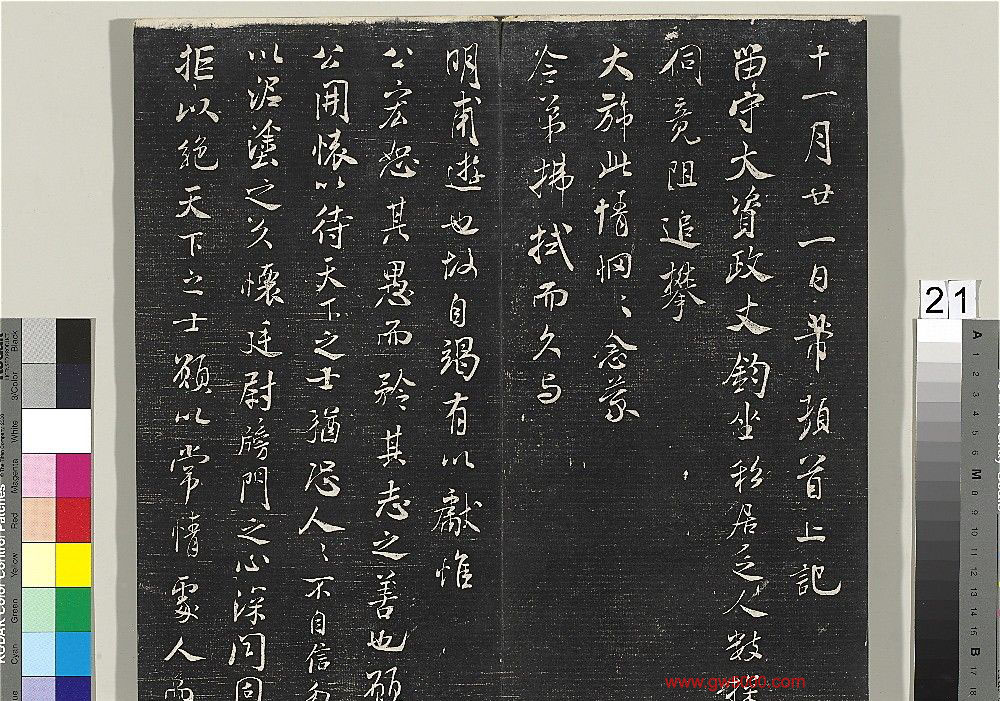 十一月廿一日芾頓首上記
留守大資政丈鈞坐移居乏人數
伺竟阻追攀
大旆此情惘〻念蒙
令弟拂拭而久与
明甫遊也故自竭有以獻惟
公宏恕其愚而矜其志之善也願
公開懷以待天下之士猶恐人〻不自信
以泥塗之久懷廷尉牓門之心深閉固
拒以絕天下之士願以常情處人
21
www.gw8000.com
KODAK Color Control Patches
Black
3/Color
White
Magenta
Red
Yellow
Green
Cyan
A
1
2
3
4
5
6
M
8
9
10
11
12
13
14
15
B
17
18